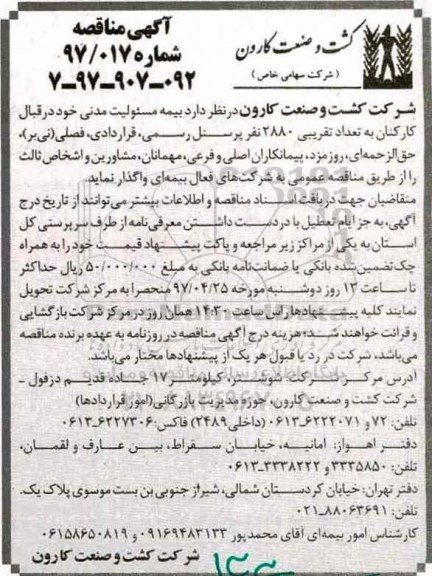 کشت و صنعت کارون
( شرکت سهامی خاص )
آگهی مناقصه
شماره ۹۷/۰۱۷
۷-۹۷-۹۰۷-۰۹۲
شرکت کشت و صنعت کارون در نظر دارد بیمه مسئولیت مدنی خود در قبال
کارکنان به تعداد تقریبی ۲۸۸۰ نفر پرسنل رسمی، قراردادی، فصلی(نی‌بر)،
حق‌الزحمه‌ای، روزمزد، پیمانکاران اصلی و فرعی، مهمانان، مشاورین و اشخاص ثالث
را از طریق مناقصه عمومی به شرکت‌های فعال بیمه‌ای واگذار نماید.
متقاضیان جهت دریافت اسناد مناقصه و اطلاعات بیشتر می‌توانند از تاریخ درج
آگهی، به جز ایام تعطیل با در دست داشتن معرفی‌نامه از طرف سرپرستی کل
استان به یکی از مراکز زیر مراجعه و پاکت پیشنهاد قیمت خود را به همراه
چک تضمین‌شده بانکی یا ضمانت‌نامه بانکی به مبلغ ۵۰/۰۰۰/۰۰۰ ریال حداکثر
تا ساعت ۱۲ روز دوشنبه مورخه ۹۷/۰۴/۲۵ منحصرا به مرکز شرکت تحویل
نمایند کلیه پیشنهادها راس ساعت ۱۴:۳۰ همان روز در مرکز شرکت بازگشایی
و قرائت خواهند شد. هزینه درج آگهی مناقصه در روزنامه به عهده برنده مناقصه
می‌باشد، شرکت در رد یا قبول هر یک از پیشنهادها مختار می‌باشد.
آدرس مرکز شرکت: شوشتر، کیلومتر ۱۷ جاده قدیم دزفول -
شرکت کشت و صنعت کارون، حوزه مدیریت بازرگانی(امور قراردادها)
تلفن: ۷۲ و ۶۲۲۲۰۷۱-۰۶۱۳ (داخلی ۲۴۸۹) فاکس: ۶۲۲۷۳۰۶-۰۶۱۳
دفتر اهواز: امانیه، خیابان سقراط، بین عارف و لقمان،
تلفن: ۳۳۳۵۸۵۰ و ۳۳۳۸۲۲۲-۰۶۱۳
دفتر تهران: خیابان کردستان شمالی، شیراز جنوبی بن بست موسوی پلاک یک.
تلفن: ۸۸۰۶۳۶۹۱-۰۲۱
کارشناس امور بیمه‌ای آقای محمدپور ۰۹۱۶۹۴۸۳۱۳۳ و ۰۶۱۵۸۶۵۰۸۱۹
شرکت کشت و صنعت کارون